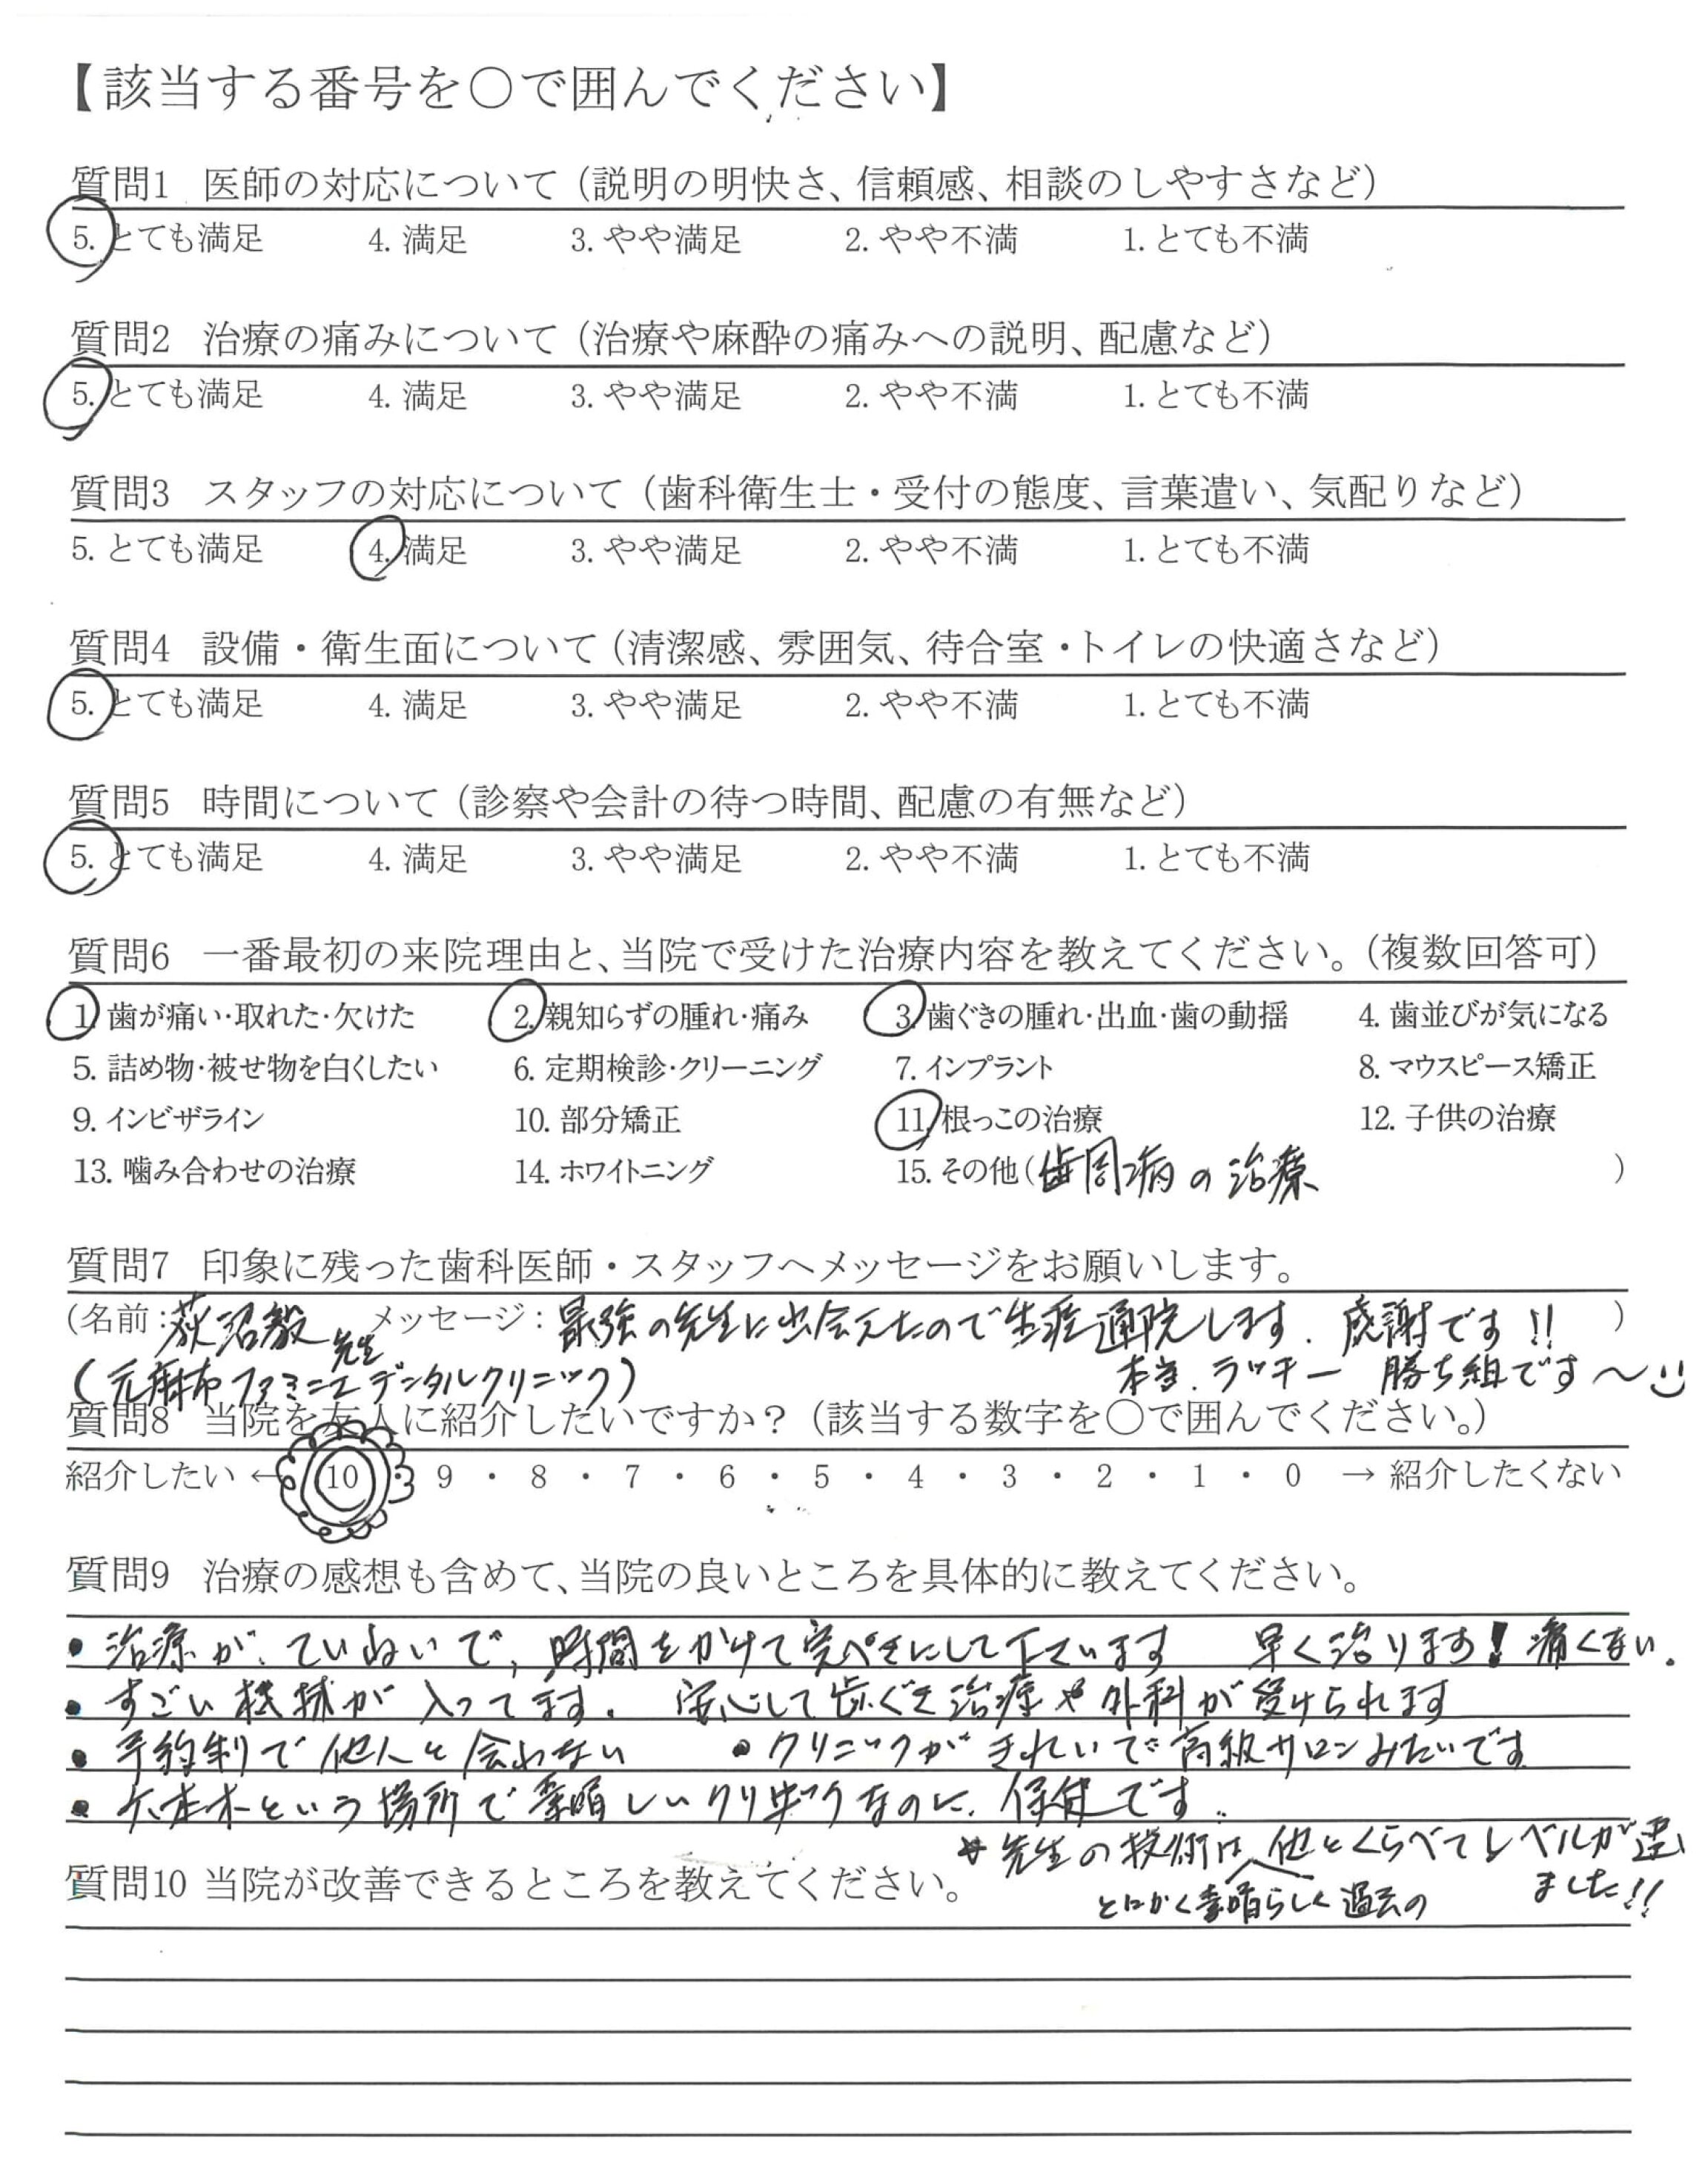 【該当する番号を○で囲んでください】
質問1 医師の対応について（説明の明快さ、信頼感、相談のしやすさなど）
5. とても満足 4. 満足 3. やや満足 2. やや不満 1. とても不満
質問2 治療の痛みについて（治療や麻酔の痛みへの説明、配慮など）
5. とても満足 4. 満足 3. やや満足 2. やや不満 1. とても不満
質問3 スタッフの対応について（歯科衛生士・受付の態度、言葉遣い、気配りなど）
5. とても満足 4. 満足 3. やや満足 2. やや不満 1. とても不満
質問4 設備・衛生面について（清潔感、雰囲気、待合室・トイレの快適さなど）
5. とても満足 4. 満足 3. やや満足 2. やや不満 1. とても不満
質問5 時間について（診察や会計の待つ時間、配慮の有無など）
5. とても満足 4. 満足 3. やや満足 2. やや不満 1. とても不満
質問6 一番最初の来院理由と、当院で受けた治療内容を教えてください。（複数回答可）
1. 歯が痛い・取れた・欠けた 2. 親知らずの腫れ・痛み 3. 歯ぐきの腫れ・出血・歯の動揺 4. 歯並びが気になる
5. 詰め物・被せ物を白くしたい 6. 定期検診・クリーニング 7. インプラント 8. マウスピース矯正
9. インビザライン 10. 部分矯正 11. 根っこの治療 12. 子供の治療
13. 噛み合わせの治療 14. ホワイトニング 15. その他（歯周病の治療）
質問7 印象に残った歯科医師・スタッフへメッセージをお願いします。
（名前：荻沼毅先生 メッセージ：最強の先生に出会えたので生涯通院します. 感謝です!!）
（元麻布ファミニエデンタルクリニック） 本当. ラッキー 勝ち組です〜
質問8 当院を友人に紹介したいですか？（該当する数字を○で囲んでください。）
紹介したい ← 10 ・ 9 ・ 8 ・ 7 ・ 6 ・ 5 ・ 4 ・ 3 ・ 2 ・ 1 ・ 0 → 紹介したくない
質問9 治療の感想も含めて、当院の良いところを具体的に教えてください。
・治療が、ていねいで, 時間をかけて完ぺきにして下さいます 早く治ります! 痛くない.
・すごい機械が入ってます. 安心して歯ぐき治療や外科が受けられます
・予約制で他人と会わない ・クリニックがきれいで高級サロンみたいです
・六本木という場所で素晴しいクリニックなのに. 保健です.
先生の技術は、他とくらべてレベルが違い
とにかく素晴らしく過去の ました!!
質問10 当院が改善できるところを教えてください。